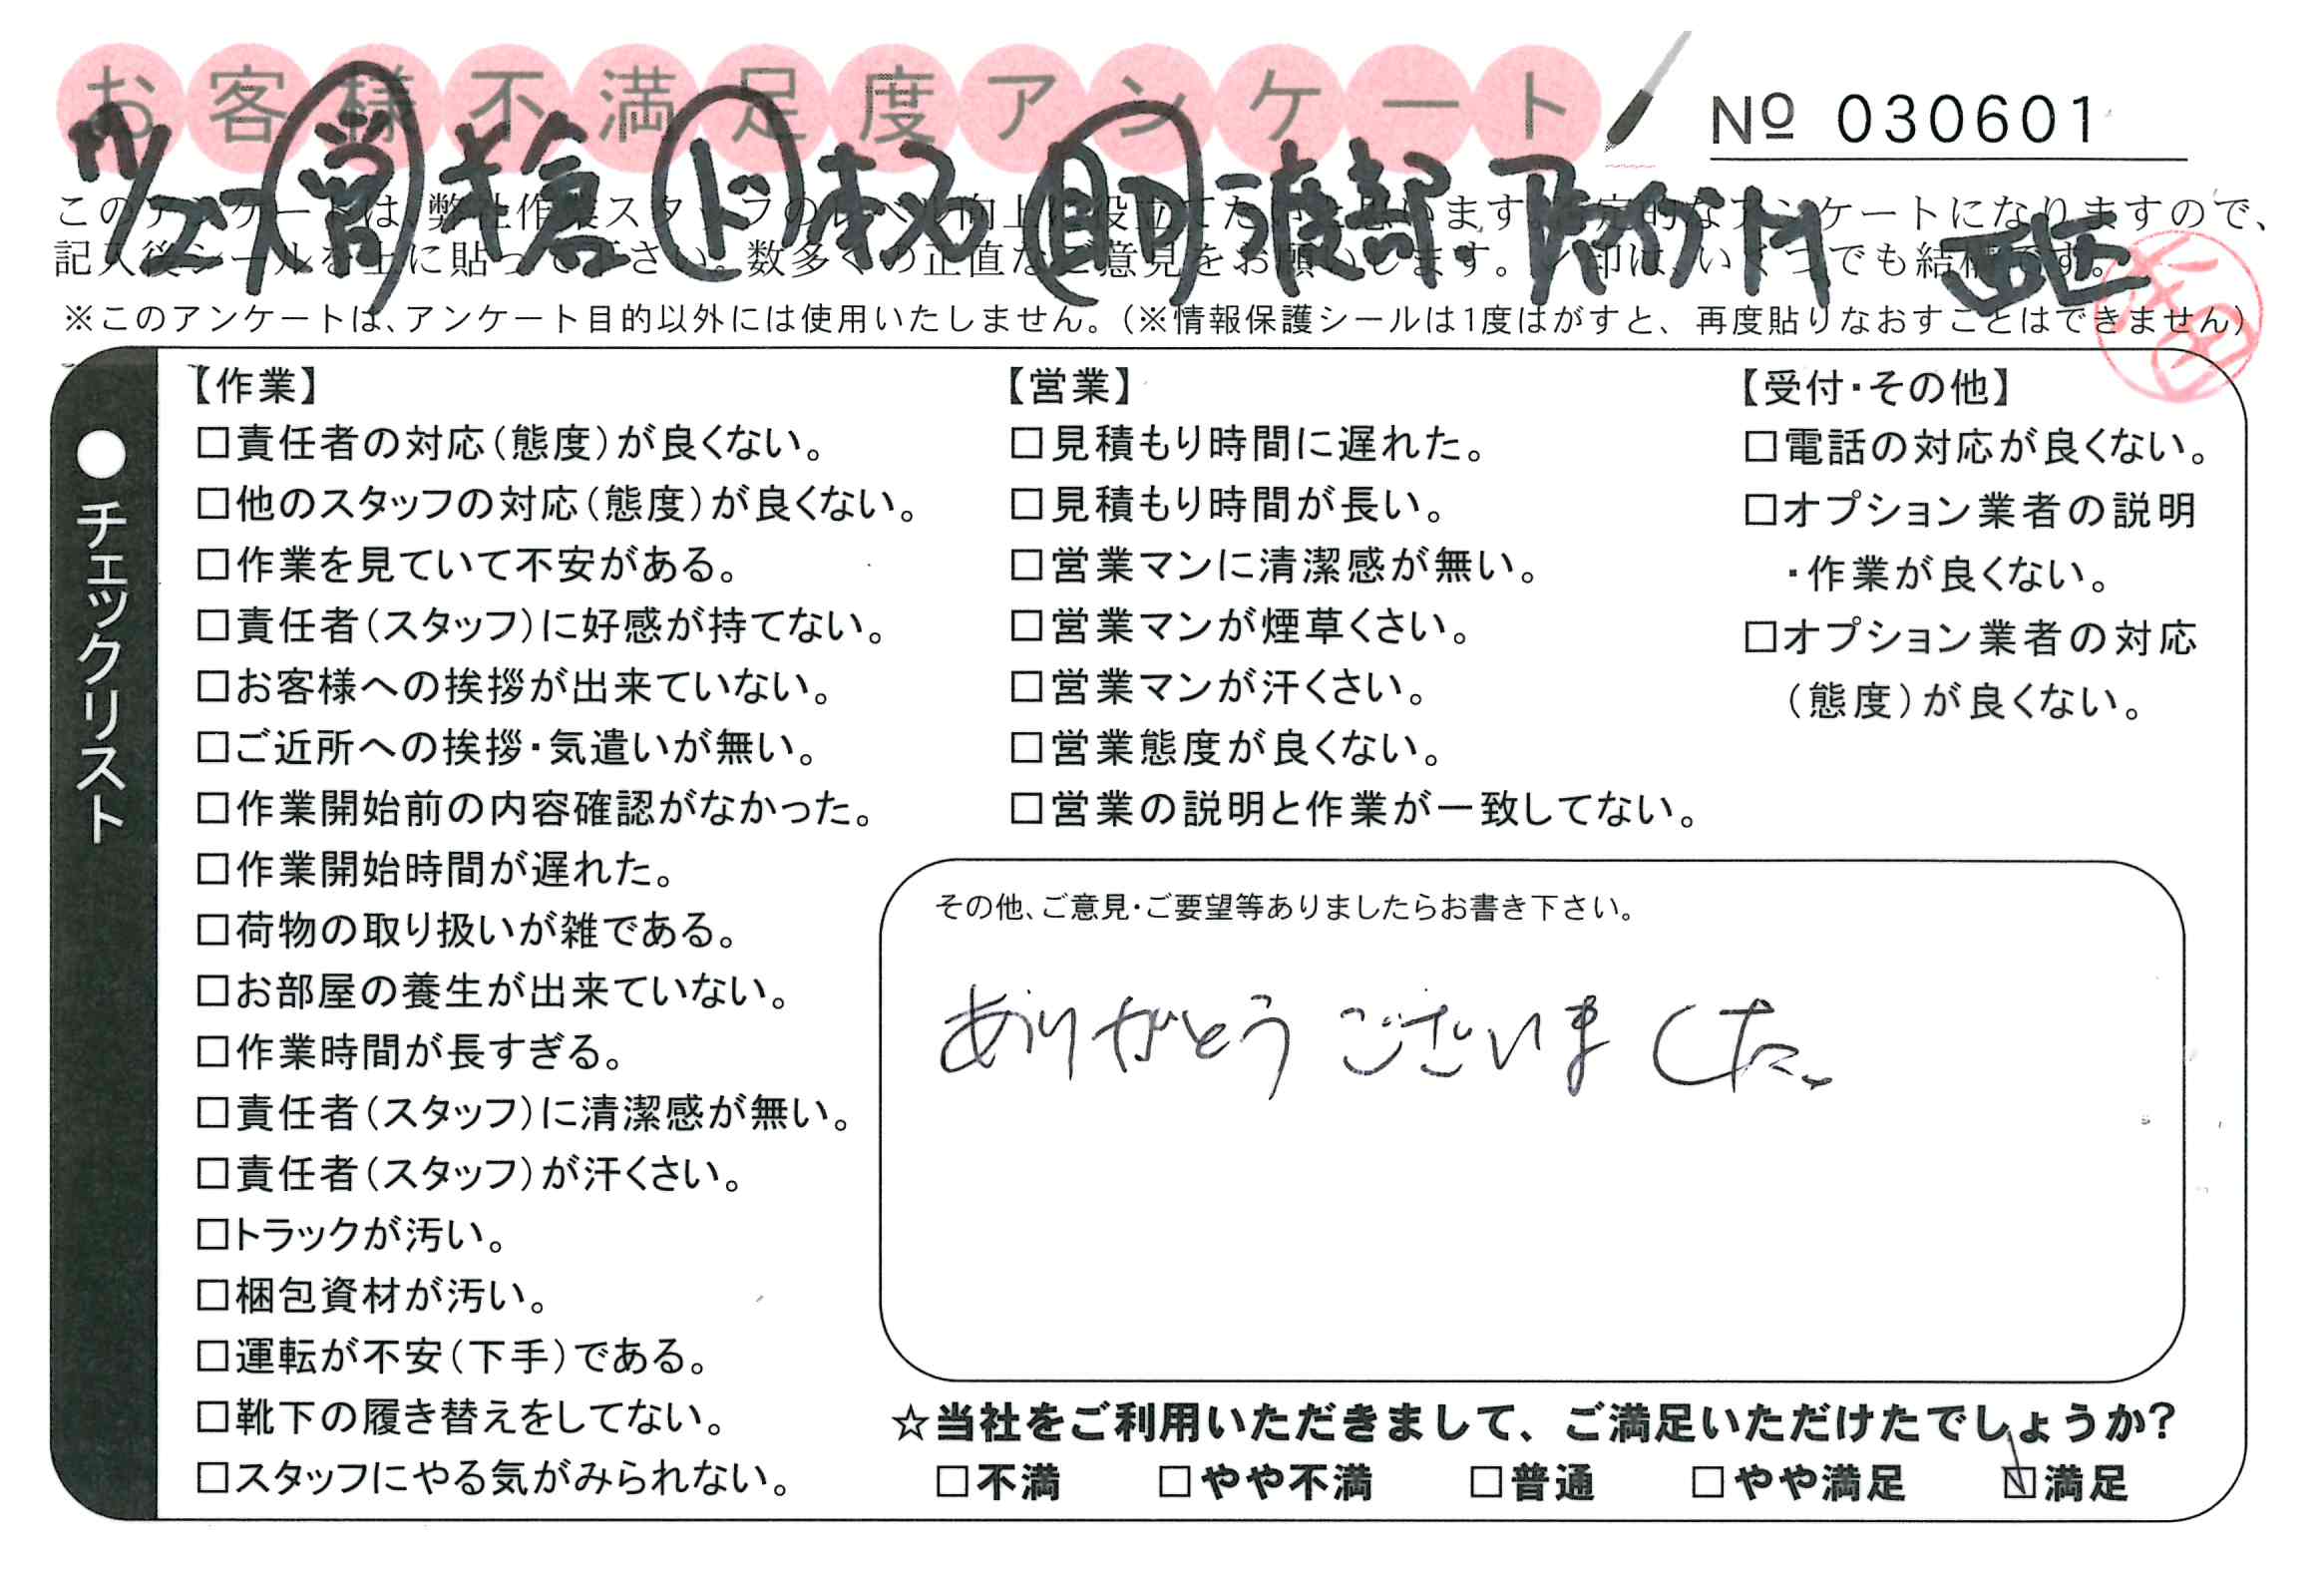 お客様不満足度アンケート
№ 030601
営 ド 助 渡部
このアンケートは、弊社作業スタッフのレベル向上に役立てたいと思います。定的なアンケートになりますので、
記入後シールを上に貼って下さい。数多くの正直なご意見をお願いします。レ印は、いくつでも結構です。
※このアンケートは、アンケート目的以外には使用いたしません。(※情報保護シールは1度はがすと、再度貼りなおすことはできません)
●チェックリスト
【作業】
□責任者の対応(態度)が良くない。
□他のスタッフの対応(態度)が良くない。
□作業を見ていて不安がある。
□責任者(スタッフ)に好感が持てない。
□お客様への挨拶が出来ていない。
□ご近所への挨拶・気遣いが無い。
□作業開始前の内容確認がなかった。
□作業開始時間が遅れた。
□荷物の取り扱いが雑である。
□お部屋の養生が出来ていない。
□作業時間が長すぎる。
□責任者(スタッフ)に清潔感が無い。
□責任者(スタッフ)が汗くさい。
□トラックが汚い。
□梱包資材が汚い。
□運転が不安(下手)である。
□靴下の履き替えをしてない。
□スタッフにやる気がみられない。
【営業】
□見積もり時間に遅れた。
□見積もり時間が長い。
□営業マンに清潔感が無い。
□営業マンが煙草くさい。
□営業マンが汗くさい。
□営業態度が良くない。
□営業の説明と作業が一致してない。
【受付・その他】
□電話の対応が良くない。
□オプション業者の説明
・作業が良くない。
□オプション業者の対応
(態度)が良くない。
その他、ご意見・ご要望等ありましたらお書き下さい。
ありがとうございました。
☆当社をご利用いただきまして、ご満足いただけたでしょうか?
□不満 □やや不満 □普通 □やや満足 ☑満足